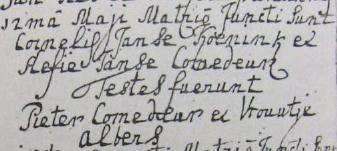 12ma May Mathio Juncti sunt
Cornelis Janse Koenink et
Aefie Janse Comedeur
Testes fuerunt
Pieter Comedeur et Vrouwtje
Albers